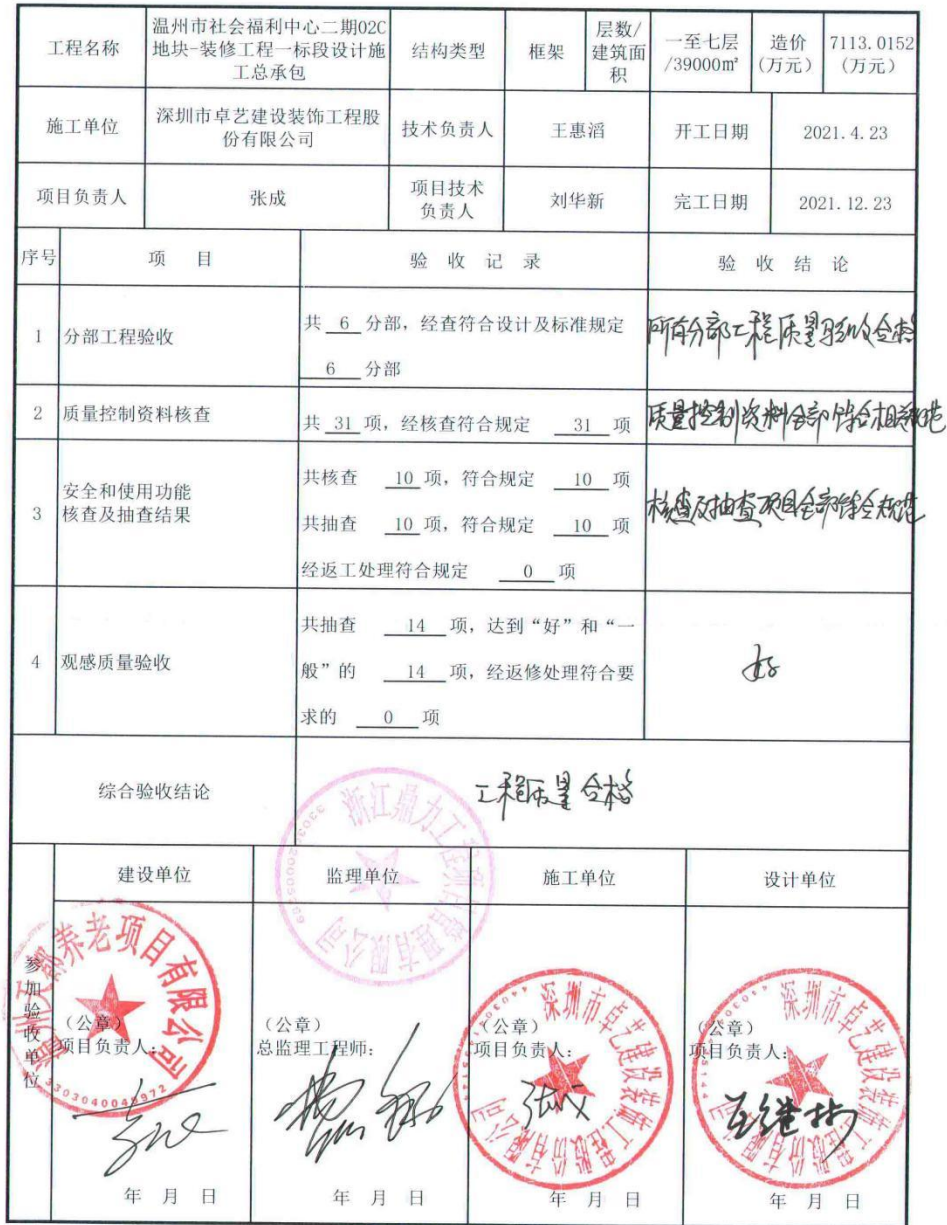 工程名称
温州市社会福利中心二期02C
地块-装修工程一标段设计施
工总承包
结构类型
框架
层数/
建筑面
积
一至七层
/39000m²
造价
(万元)
7113.0152
(万元)
施工单位
深圳市卓艺建设装饰工程股
份有限公司
技术负责人
王惠滔
开工日期
2021.4.23
项目负责人
张成
项目技术
负责人
刘华新
完工日期
2021.12.23
序号
项 目
验 收 记 录
验 收 结 论
1
分部工程验收
共 6 分部，经查符合设计及标准规定
6 分部
所有分部工程质量验收合格
2
质量控制资料核查
共 31 项，经核查符合规定 31 项
质量控制资料全部符合相关规范
3
安全和使用功能
核查及抽查结果
共核查 10 项，符合规定 10 项
共抽查 10 项，符合规定 10 项
经返工处理符合规定 0 项
核查及抽查项目全部符合规范
4
观感质量验收
共抽查 14 项，达到“好”和“一
般”的 14 项，经返修处理符合要
求的 0 项
好
综合验收结论
工程质量合格
浙江鼎力工程项目管理有限公司
参加验收单位
建设单位
监理单位
施工单位
设计单位
养老项目有限公司
3303040040972
（公章）
项目负责人：
年 月 日
（公章）
总监理工程师：
年 月 日
深圳市卓艺建设装饰工程股份有限公司
（公章）
项目负责人：
张成
年 月 日
深圳市卓艺建设装饰工程股份有限公司
（公章）
项目负责人：
年 月 日